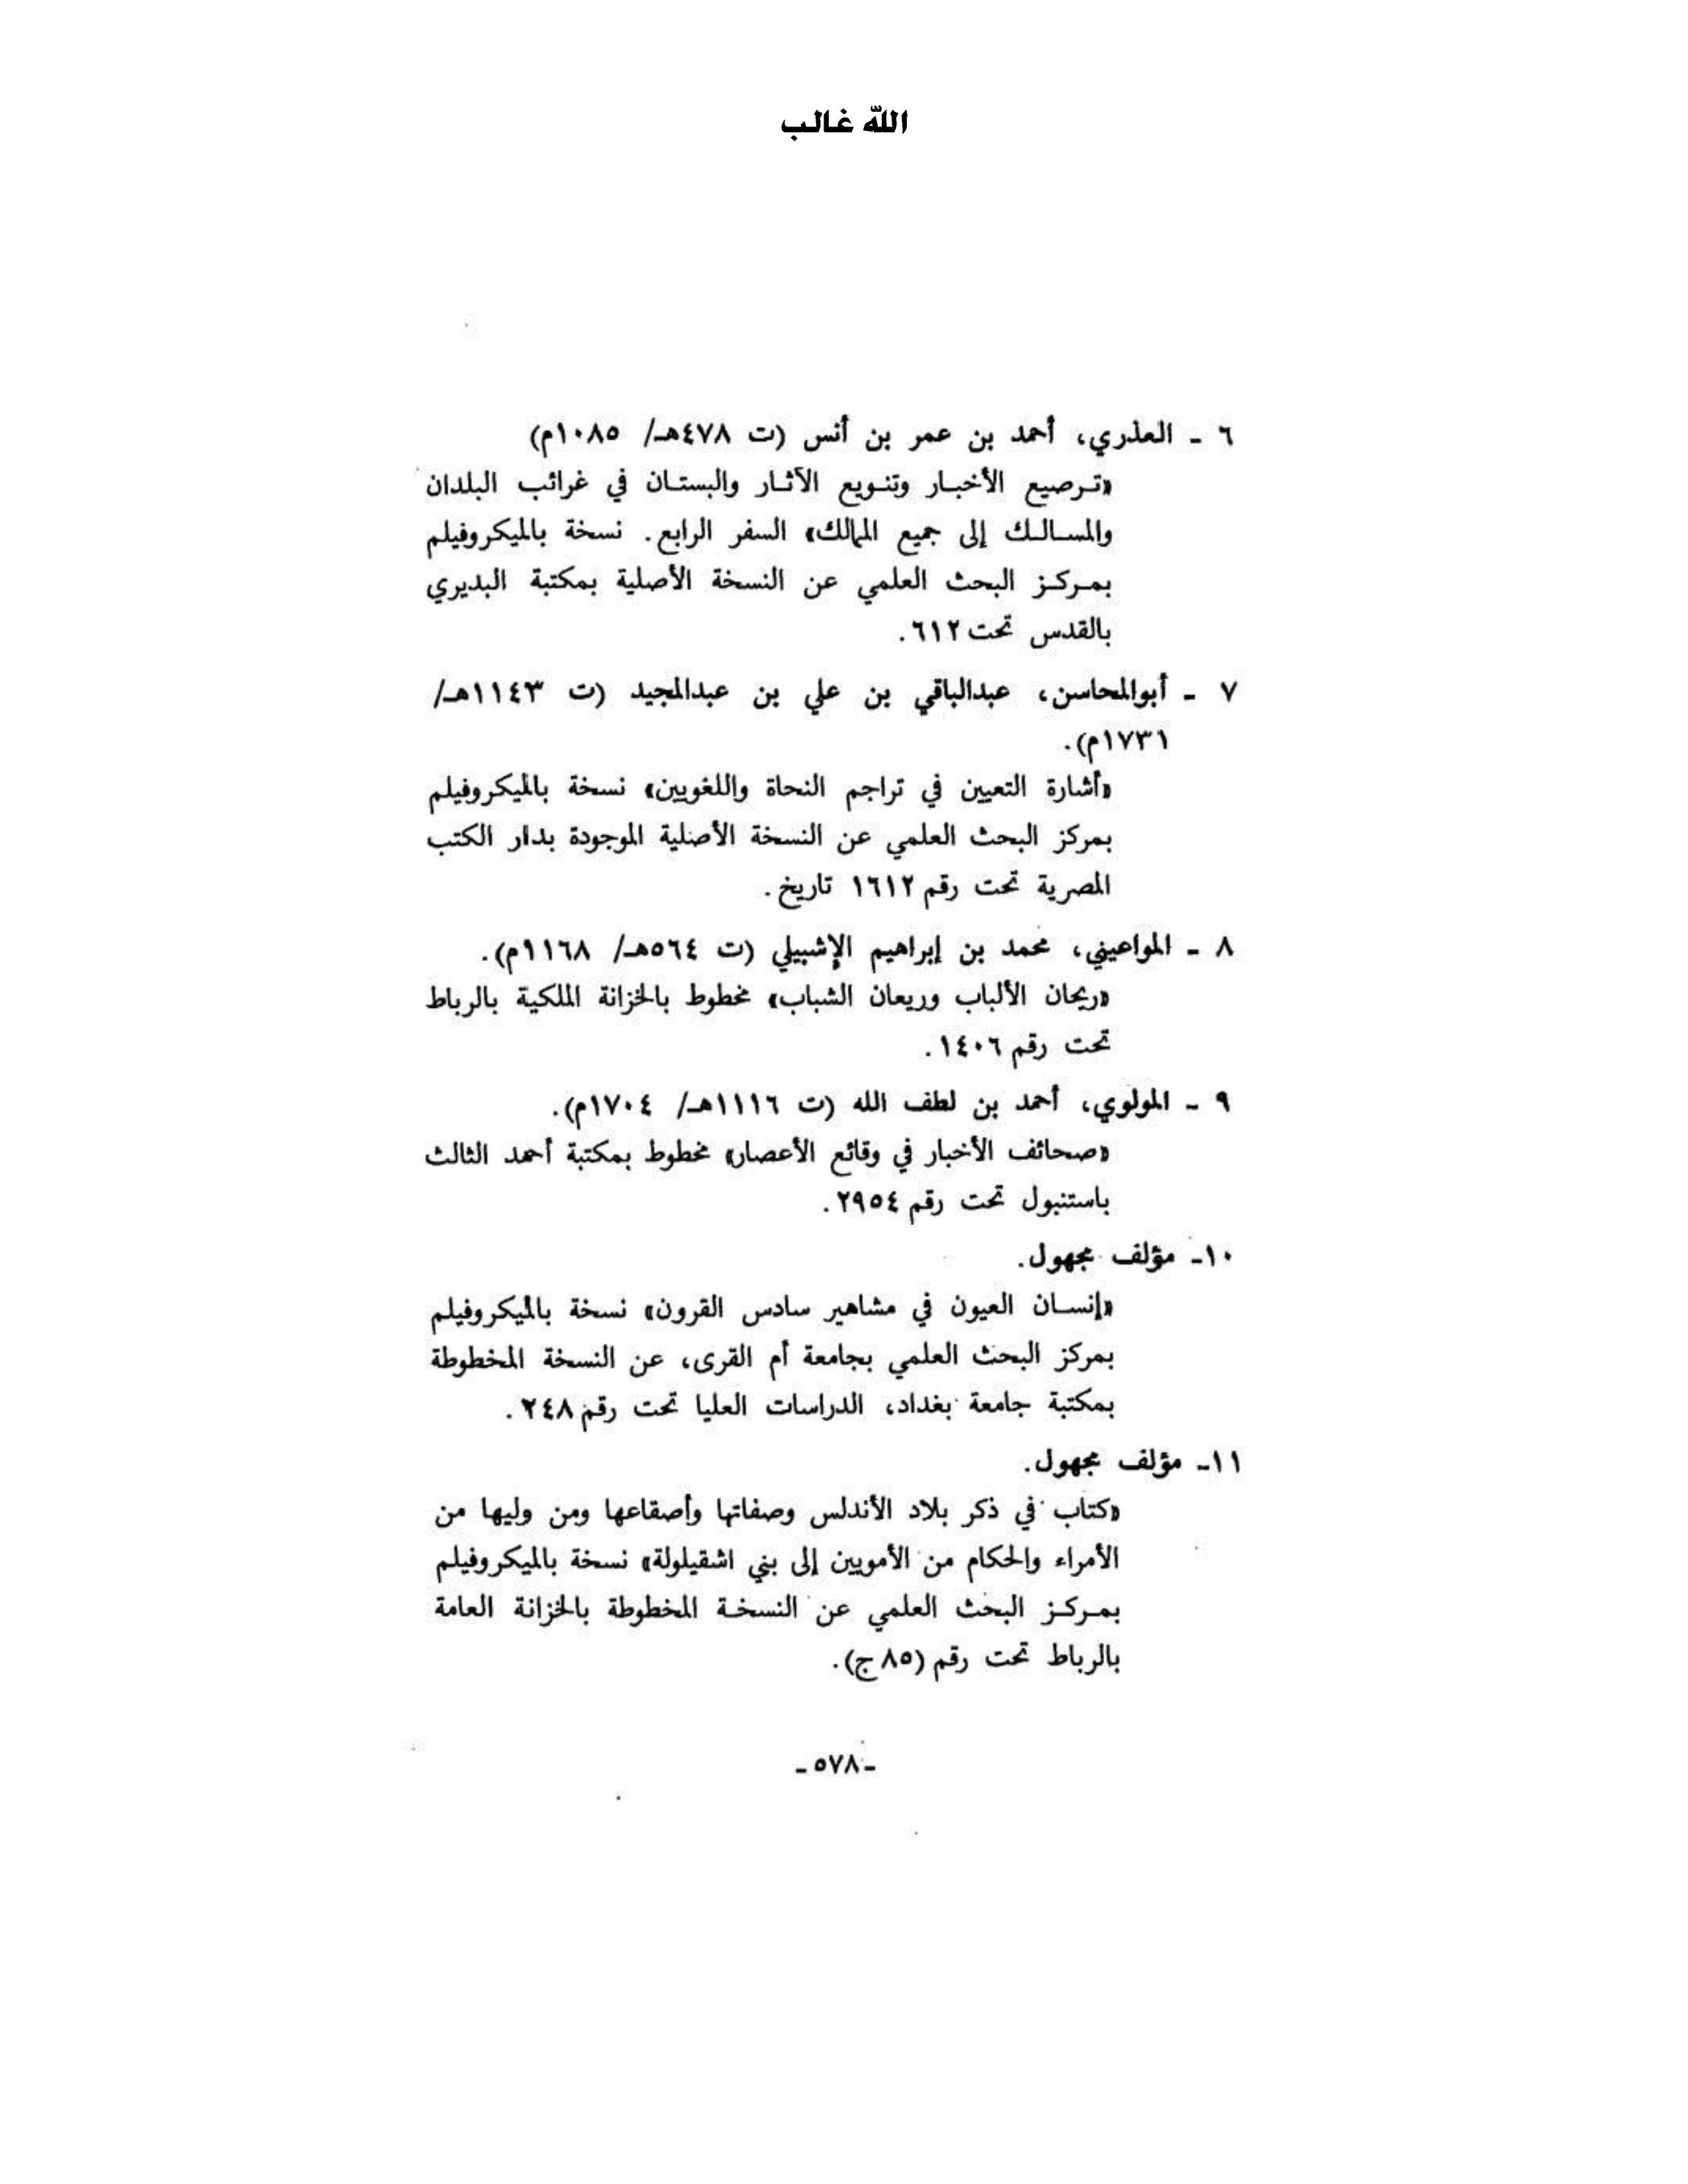 الله غالب
٦ - العذري، أحمد بن عمر بن أنس (ت ٤٧٨هـ/ ١٠٨٥م)
«ترصيع الأخبار وتنويع الآثار والبستان في غرائب البلدان
والمسالك إلى جميع الممالك» السفر الرابع. نسخة بالميكروفيلم
بمركز البحث العلمي عن النسخة الأصلية بمكتبة البديري
بالقدس تحت ٦١٢.
٧ - أبوالمحاسن، عبدالباقي بن علي بن عبدالمجيد (ت ١١٤٣هـ/
١٧٣١م).
«أشارة التعيين في تراجم النحاة واللغويين» نسخة بالميكروفيلم
بمركز البحث العلمي عن النسخة الأصلية الموجودة بدار الكتب
المصرية تحت رقم ١٦١٢ تاريخ.
٨ - المواعيني، محمد بن إبراهيم الإشبيلي (ت ٥٦٤هـ/ ١١٦٨م).
«ريحان الألباب وريعان الشباب» مخطوط بالخزانة الملكية بالرباط
تحت رقم ١٤٠٦.
٩ - المولوي، أحمد بن لطف الله (ت ١١١٦هـ/ ١٧٠٤م).
«صحائف الأخبار في وقائع الأعصار» مخطوط بمكتبة أحمد الثالث
باستنبول تحت رقم ٢٩٥٤.
١٠- مؤلف مجهول.
«إنسان العيون في مشاهير سادس القرون» نسخة بالميكروفيلم
بمركز البحث العلمي بجامعة أم القرى، عن النسخة المخطوطة
بمكتبة جامعة بغداد، الدراسات العليا تحت رقم ٢٤٨.
١١- مؤلف مجهول.
«كتاب في ذكر بلاد الأندلس وصفاتها وأصقاعها ومن وليها من
الأمراء والحكام من الأمويين إلى بني اشقيلولة» نسخة بالميكروفيلم
بمركز البحث العلمي عن النسخة المخطوطة بالخزانة العامة
بالرباط تحت رقم (٨٥ ج).
- ٥٧٨ -